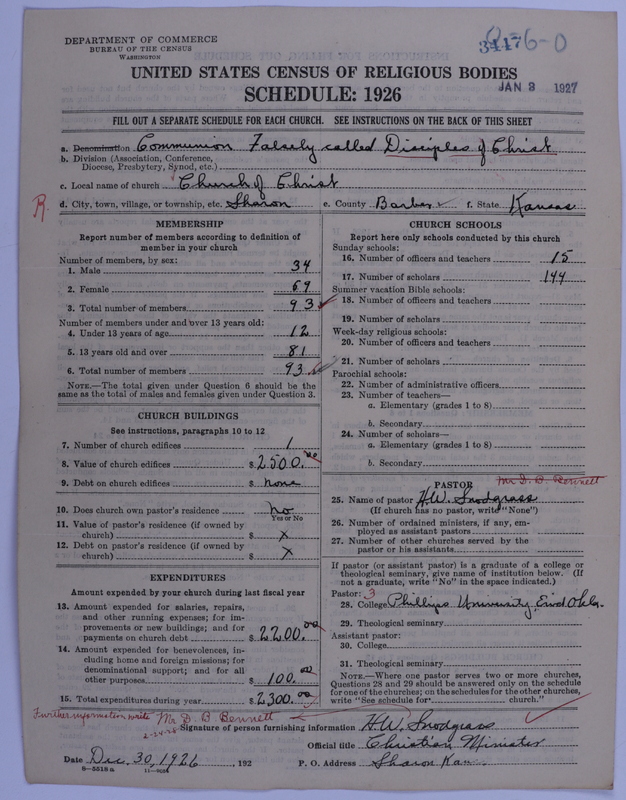 DEPARTMENT OF COMMERCE
BUREAU OF THE CENSUS
WASHINGTON
6-0
UNITED STATES CENSUS OF RELIGIOUS BODIES
JAN 3 1927
SCHEDULE: 1926
FILL OUT A SEPARATE SCHEDULE FOR EACH CHURCH. SEE INSTRUCTIONS ON THE BACK OF THIS SHEET
a. Denomination Communion Falsely called Disciples of Christ
b. Division (Association, Conference,
Diocese, Presbytery, Synod, etc.)
c. Local name of church Church of Christ
R. d. City, town, village, or township, etc. Sharon e. County Barber f. State Kansas
MEMBERSHIP
Report number of members according to definition of
member in your church
Number of members, by sex:
1. Male 34
2. Female 69
3. Total number of members 93
Number of members under and over 13 years old:
4. Under 13 years of age 12
5. 13 years old and over 81
6. Total number of members 93
NOTE.—The total given under Question 6 should be the
same as the total of males and females given under Question 3.
CHURCH BUILDINGS
See instructions, paragraphs 10 to 12
7. Number of church edifices 1
8. Value of church edifices $ 2500.00
9. Debt on church edifices $ none
10. Does church own pastor's residence no
Yes or No
11. Value of pastor's residence (if owned by
church) $ x
12. Debt on pastor's residence (if owned by
church) $ x
EXPENDITURES
Amount expended by your church during last fiscal year
13. Amount expended for salaries, repairs,
and other running expenses; for im-
provements or new buildings; and for
payments on church debt $ 2200.00
14. Amount expended for benevolences, in-
cluding home and foreign missions; for
denominational support; and for all
other purposes $ 100.00
15. Total expenditures during year $ 2300.00
CHURCH SCHOOLS
Report here only schools conducted by this church
Sunday schools:
16. Number of officers and teachers 15
17. Number of scholars 144
Summer vacation Bible schools:
18. Number of officers and teachers
19. Number of scholars
Week-day religious schools:
20. Number of officers and teachers
21. Number of scholars
Parochial schools:
22. Number of administrative officers
23. Number of teachers—
a. Elementary (grades 1 to 8)
b. Secondary
24. Number of scholars—
a. Elementary (grades 1 to 8)
b. Secondary
PASTOR Mr D. B. Bennett
25. Name of pastor H.W. Snodgrass
(If church has no pastor, write "None")
26. Number of ordained ministers, if any, em-
ployed as assistant pastors
27. Number of other churches served by the
pastor or his assistants
If pastor (or assistant pastor) is a graduate of a college or
theological seminary, give name of institution below. (If
not a graduate, write "No" in the space indicated.)
Pastor: 3
28. College Phillips University, Enid Okla.
29. Theological seminary
Assistant pastor:
30. College
31. Theological seminary
NOTE.—Where one pastor serves two or more churches,
Questions 28 and 29 should be answered only on the schedule
for one of the churches; on the schedules for the other churches,
write "See schedule for church."
Further information write Mr D. B Bennett
Signature of person furnishing information H.W. Snodgrass
Official title Christian Minister
Date Dec. 30, 1926, 192 P. O. Address Sharon Kan
8—5518a